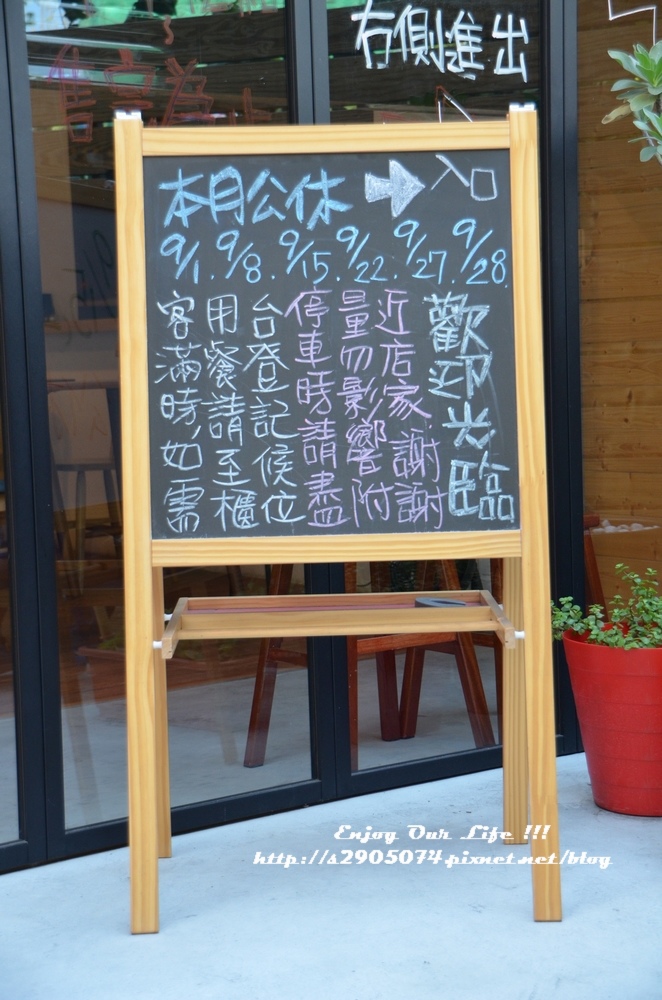 右側進出
售完為
本月公休 → 入口
9/1. 9/8. 9/15. 9/22. 9/27. 9/28.
客滿時,如需
用餐請至櫃
台登記候位
停車時請盡
量勿影響附
近店家謝謝
歡迎光臨
Enjoy Our Life !!!
http://s2905074.pixnet.net/blog